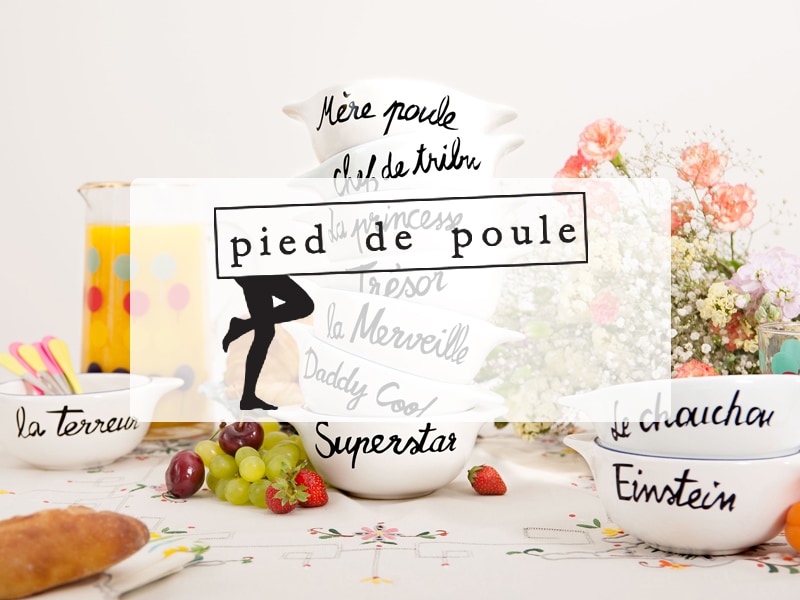 Mère poule
chef de tribu
La princesse
pied de poule
Trésor
la Merveille
Daddy Cool
la terreur
Superstar
Le chouchou
Einstein